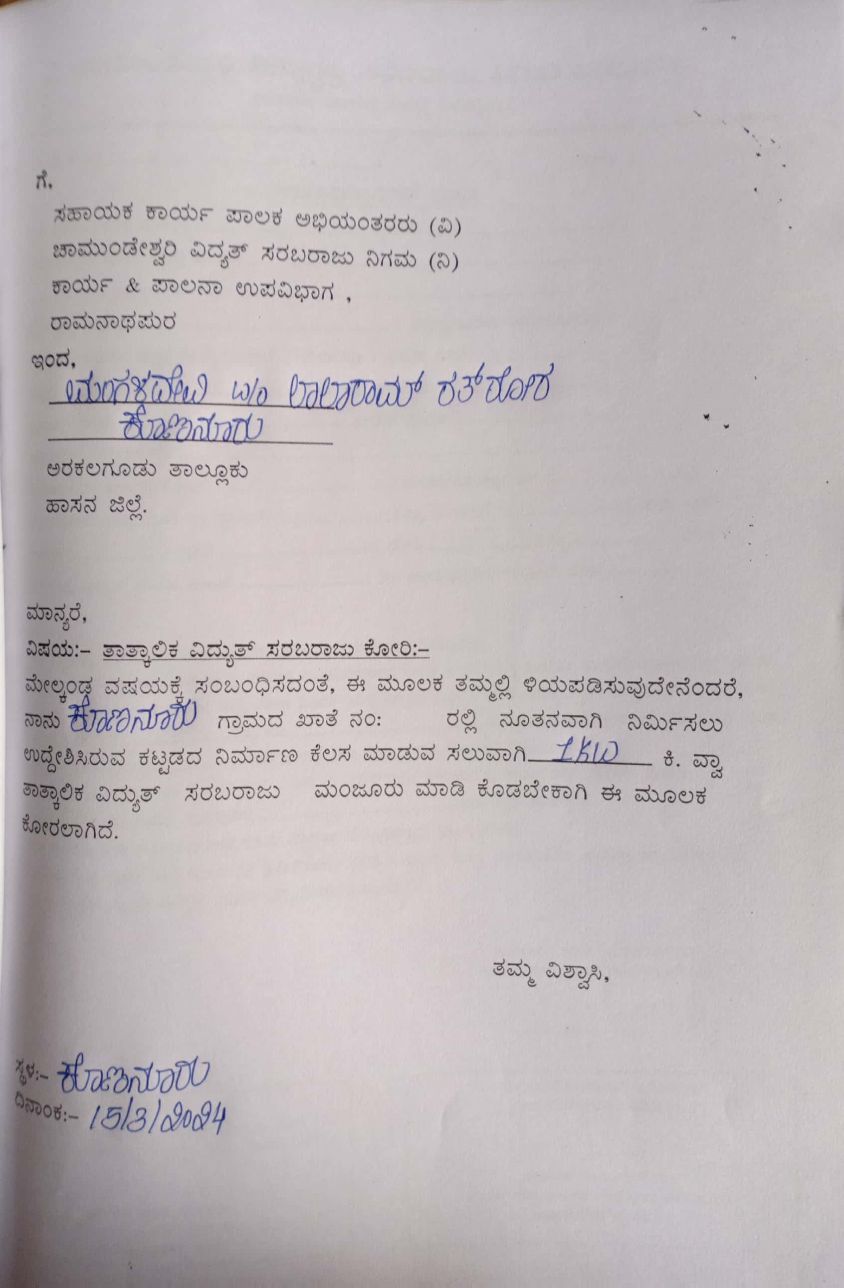 ಗೆ,
ಸಹಾಯಕ ಕಾರ್ಯ ಪಾಲಕ ಅಭಿಯಂತರರು (ವಿ)
ಚಾಮುಂಡೇಶ್ವರಿ ವಿದ್ಯತ್ ಸರಬರಾಜು ನಿಗಮ (ನಿ)
ಕಾರ್ಯ & ಪಾಲನಾ ಉಪವಿಭಾಗ ,
ರಾಮನಾಥಪುರ
ಇಂದ,
ಮಂಗಳದೇವಿ w/o ಲಾಲಾರಾಮ್
ಕೊಣನೂರು
ಅರಕಲಗೂಡು ತಾಲ್ಲೂಕು
ಹಾಸನ ಜಿಲ್ಲೆ.
ಮಾನ್ಯರೆ,
ವಿಷಯ:– ತಾತ್ಕಾಲಿಕ ವಿದ್ಯುತ್ ಸರಬರಾಜು ಕೋರಿ:–
ಮೇಲ್ಕಂಡ ವಷಯಕ್ಕೆ ಸಂಬಂಧಿಸದಂತೆ, ಈ ಮೂಲಕ ತಮ್ಮಲ್ಲಿ ಳಿಯಪಡಿಸುವುದೇನೆಂದರೆ,
ನಾನು ಕೊಣನೂರು ಗ್ರಾಮದ ಖಾತೆ ನಂ: ರಲ್ಲಿ ನೂತನವಾಗಿ ನಿರ್ಮಿಸಲು
ಉದ್ದೇಶಿಸಿರುವ ಕಟ್ಟಡದ ನಿರ್ಮಾಣ ಕೆಲಸ ಮಾಡುವ ಸಲುವಾಗಿ 1KW ಕಿ. ವ್ಯಾ
ತಾತ್ಕಾಲಿಕ ವಿದ್ಯುತ್ ಸರಬರಾಜು ಮಂಜೂರು ಮಾಡಿ ಕೊಡಬೇಕಾಗಿ ಈ ಮೂಲಕ
ಕೋರಲಾಗಿದೆ.
ತಮ್ಮ ವಿಶ್ವಾಸಿ,
ಸ್ಥಳ:– ಕೊಣನೂರು
ದಿನಾಂಕ:– 15/3/2024